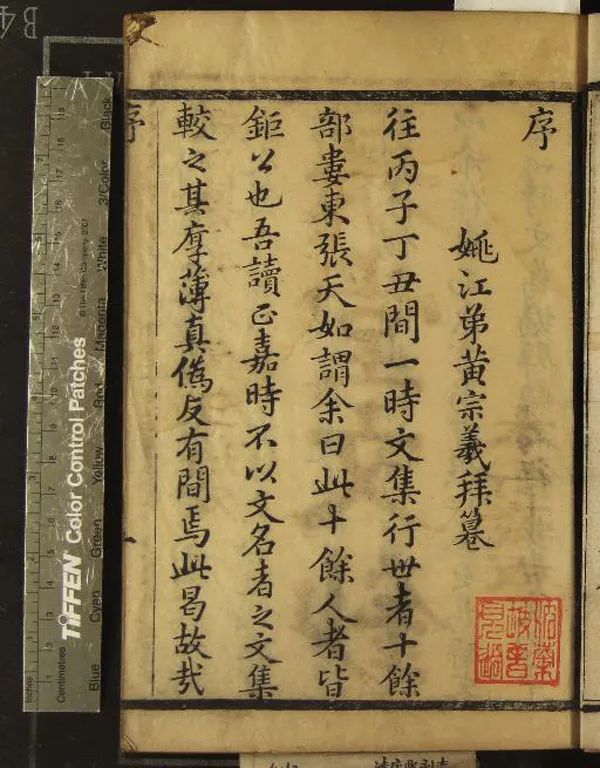 序
姚江弟黃宗羲拜篡
往丙子丁丑間一時文集行世者十餘
部婁東張天如謂余曰此十餘人者皆
鉅公也吾讀正嘉時不以文名者之文集
較之其厚薄真僞反有間焉此曷故哉
序
B4
TIFFEN Color Control Patches
©The Tiffen Company, 2007
Inches
Centimetres
Blue
Cyan
Green
Yellow
Red
Magenta
White
3/Color
Black